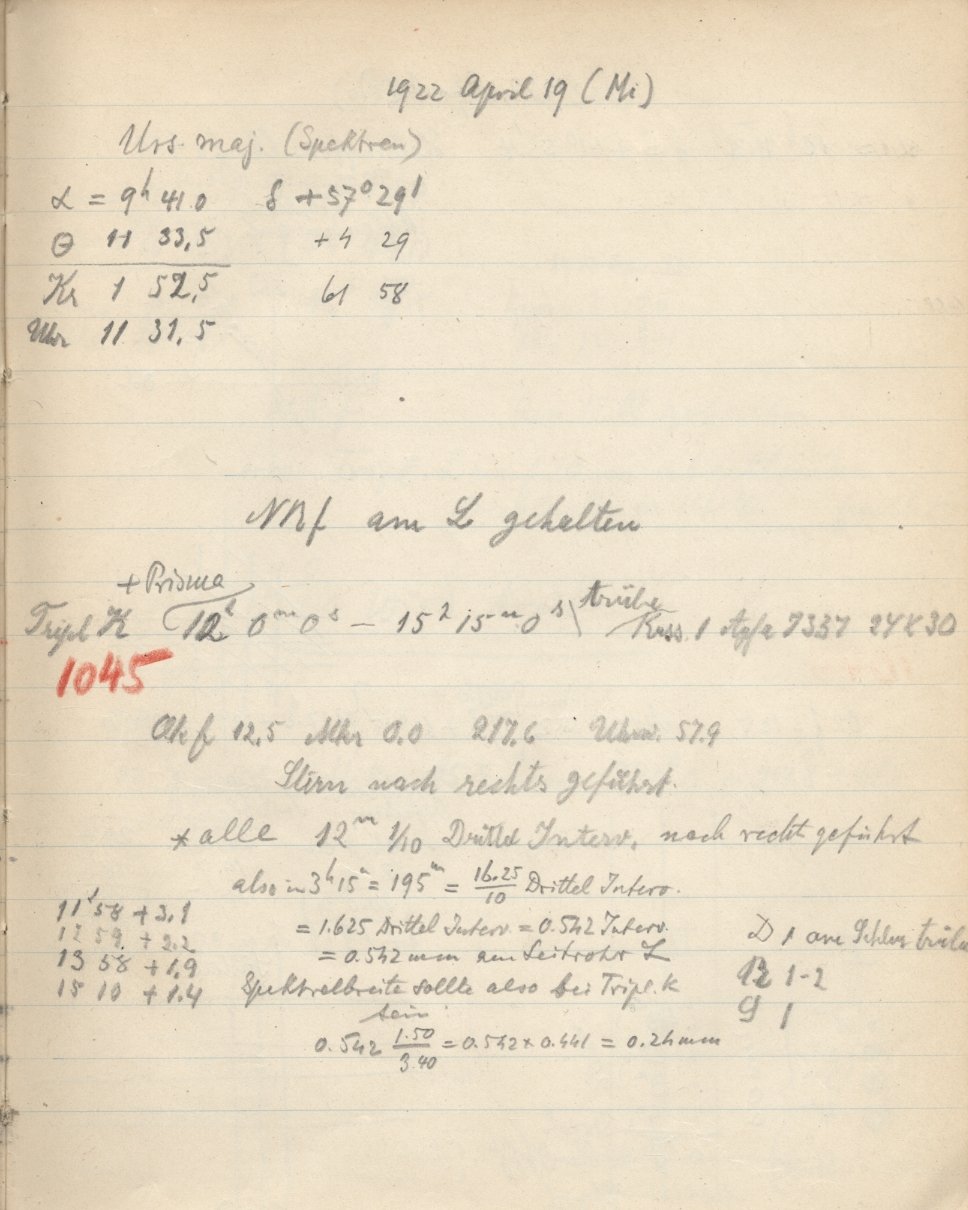 1922 April 19 (Mi)
Urs. maj. (Spektren)
α = 9h 41.0 δ +57° 29'
θ 11 33,5 +4 29
Kr 1 52,5 61 58
Uhr 11 31,5
am L gehalten
+ Prisma
Tripl K 12h 0m 0s – 15h 15m 0s trübe Kass. 1 Agfa 7337 24x30
1045
Okf 12.5 0.0 217.6 Uhrw. 57.9
Stern nach rechts geführt.
* alle 12m 1/10 Drittel Interv. nach recht geführt
also in 3h 15m = 195m = 16.25/10 Drittel Interv.
= 1.625 Drittel Interv. = 0.542 Interv.
= 0.542 mm am Leitrohr L
Spektralbreite sollte also bei Tripl. K
sein
0.542 1.50/3.40 = 0.542 × 0.441 = 0.24 mm
11h 58 + 3.1
12 59 + 2.2
13 58 + 1.9
15 10 + 1.4
D 1 am Schluss trübe
B 1-2
G 1